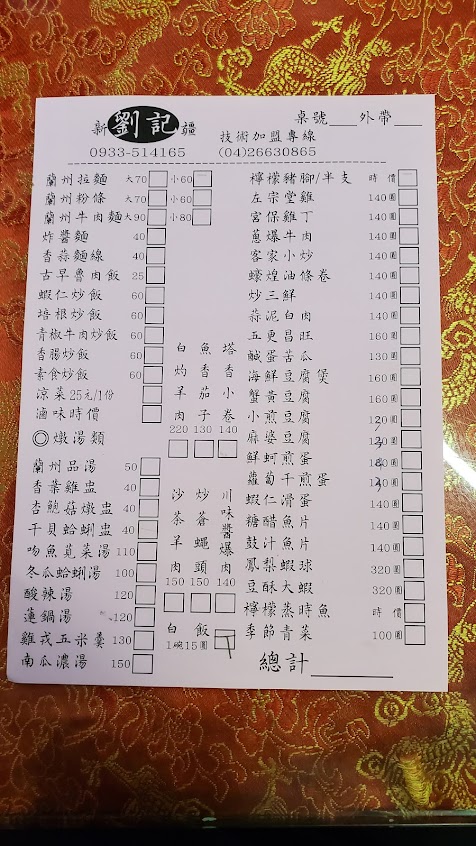 新 劉記 疆
桌號 外帶
技術加盟專線
0933-514165 (04)26630865
蘭州拉麵 大70 小60
蘭州粉條 大70 小60
蘭州牛肉麵 大90 小80
炸醬麵 40
香蒜麵線 40
古早魯肉飯 25
蝦仁炒飯 60
培根炒飯 60
青椒牛肉炒飯 60
香腸炒飯 60
素食炒飯 60
涼菜25元/1份
滷味時價
◎燉湯類
蘭州品湯 50
香菜雞盅 40
杏鮑菇燉盅 40
干貝蛤蜊盅 40
吻魚莧菜湯 110
冬瓜蛤蜊湯 100
酸辣湯 120
蓮鍋湯 120
雞戎玉米羹 130
南瓜濃湯 150
白灼羊肉 220
魚香茄子 130
塔香小卷 140
沙茶羊肉 150
炒蒼蠅頭 150
川味醬爆肉 140
白飯
1碗15圓
檸檬豬腳/半支 時價
左宗堂雞 140圓
宮保雞丁 140圓
蔥爆牛肉 140圓
客家小炒 140圓
蠔煌油條卷 140圓
炒三鮮 140圓
蒜泥白肉 140圓
五更昌旺 160圓
鹹蛋苦瓜 130圓
海鮮豆腐煲 160圓
蟹黃豆腐 160圓
小煎豆腐
麻婆豆腐
鮮蚵煎蛋
蘿蔔干煎蛋
蝦仁滑蛋 140圓
糖醋魚片 140圓
鼓汁魚片 140圓
鳳梨蝦球 320圓
豆酥大蝦 320圓
檸檬蒸時魚 時價
季節青菜 100圓
總計